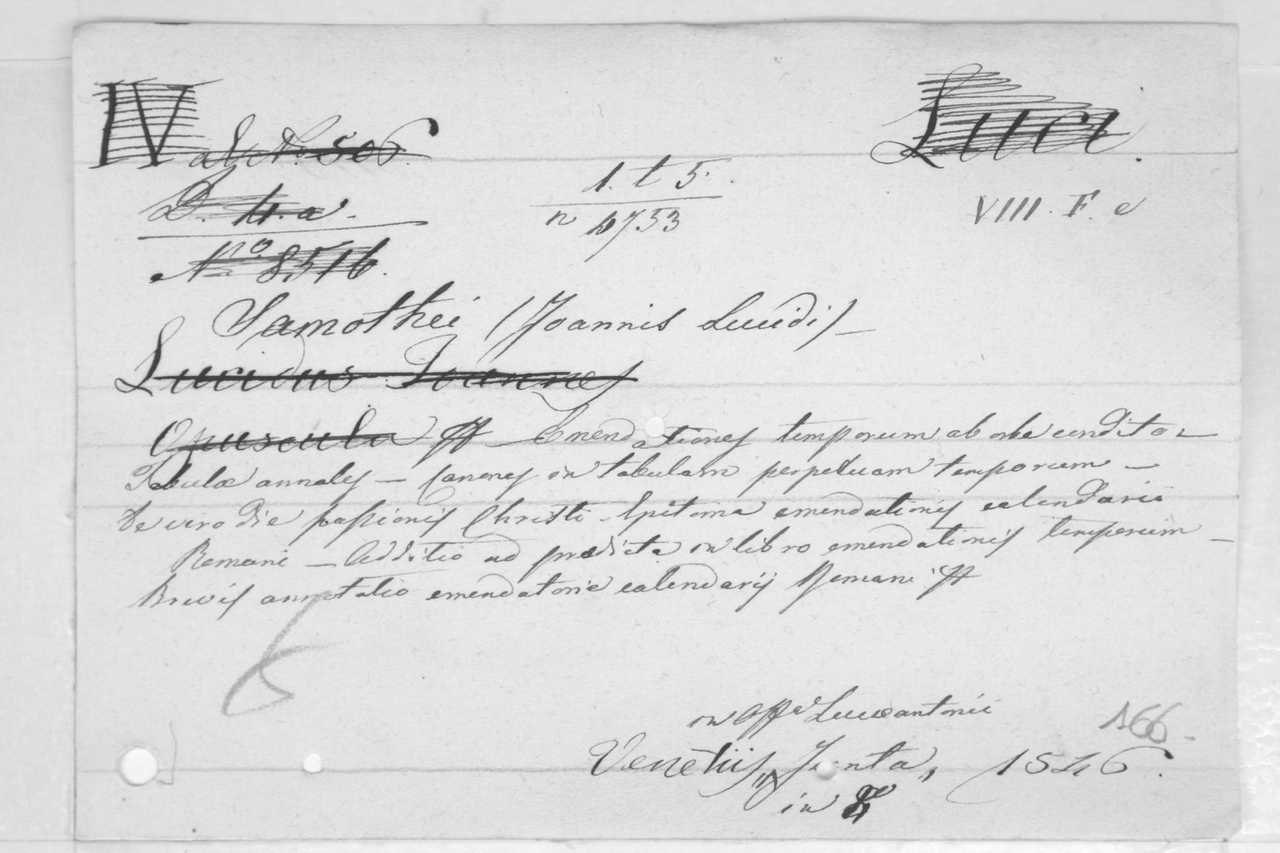 IV
Luci.
D. 4. a.
1. t 5.
n 4733
VIII. F. e
Nº 8516.
Samothei (Joannis Lucidi)
Lucidus Joannes
Opuscula Emendationes temporum ab orbe condito –
Tabulæ annales – Canones in tabulam perpetuam temporum –
De vero die passionis Christi – Epitoma emendationis calendarii
Romani – Additio ad prædicta in libro emendationis temporum –
Brevis annotatio emendatione calendarii Romani
6
in offª Lucæantonii
166
Venetiis, Junta, 1546.
in